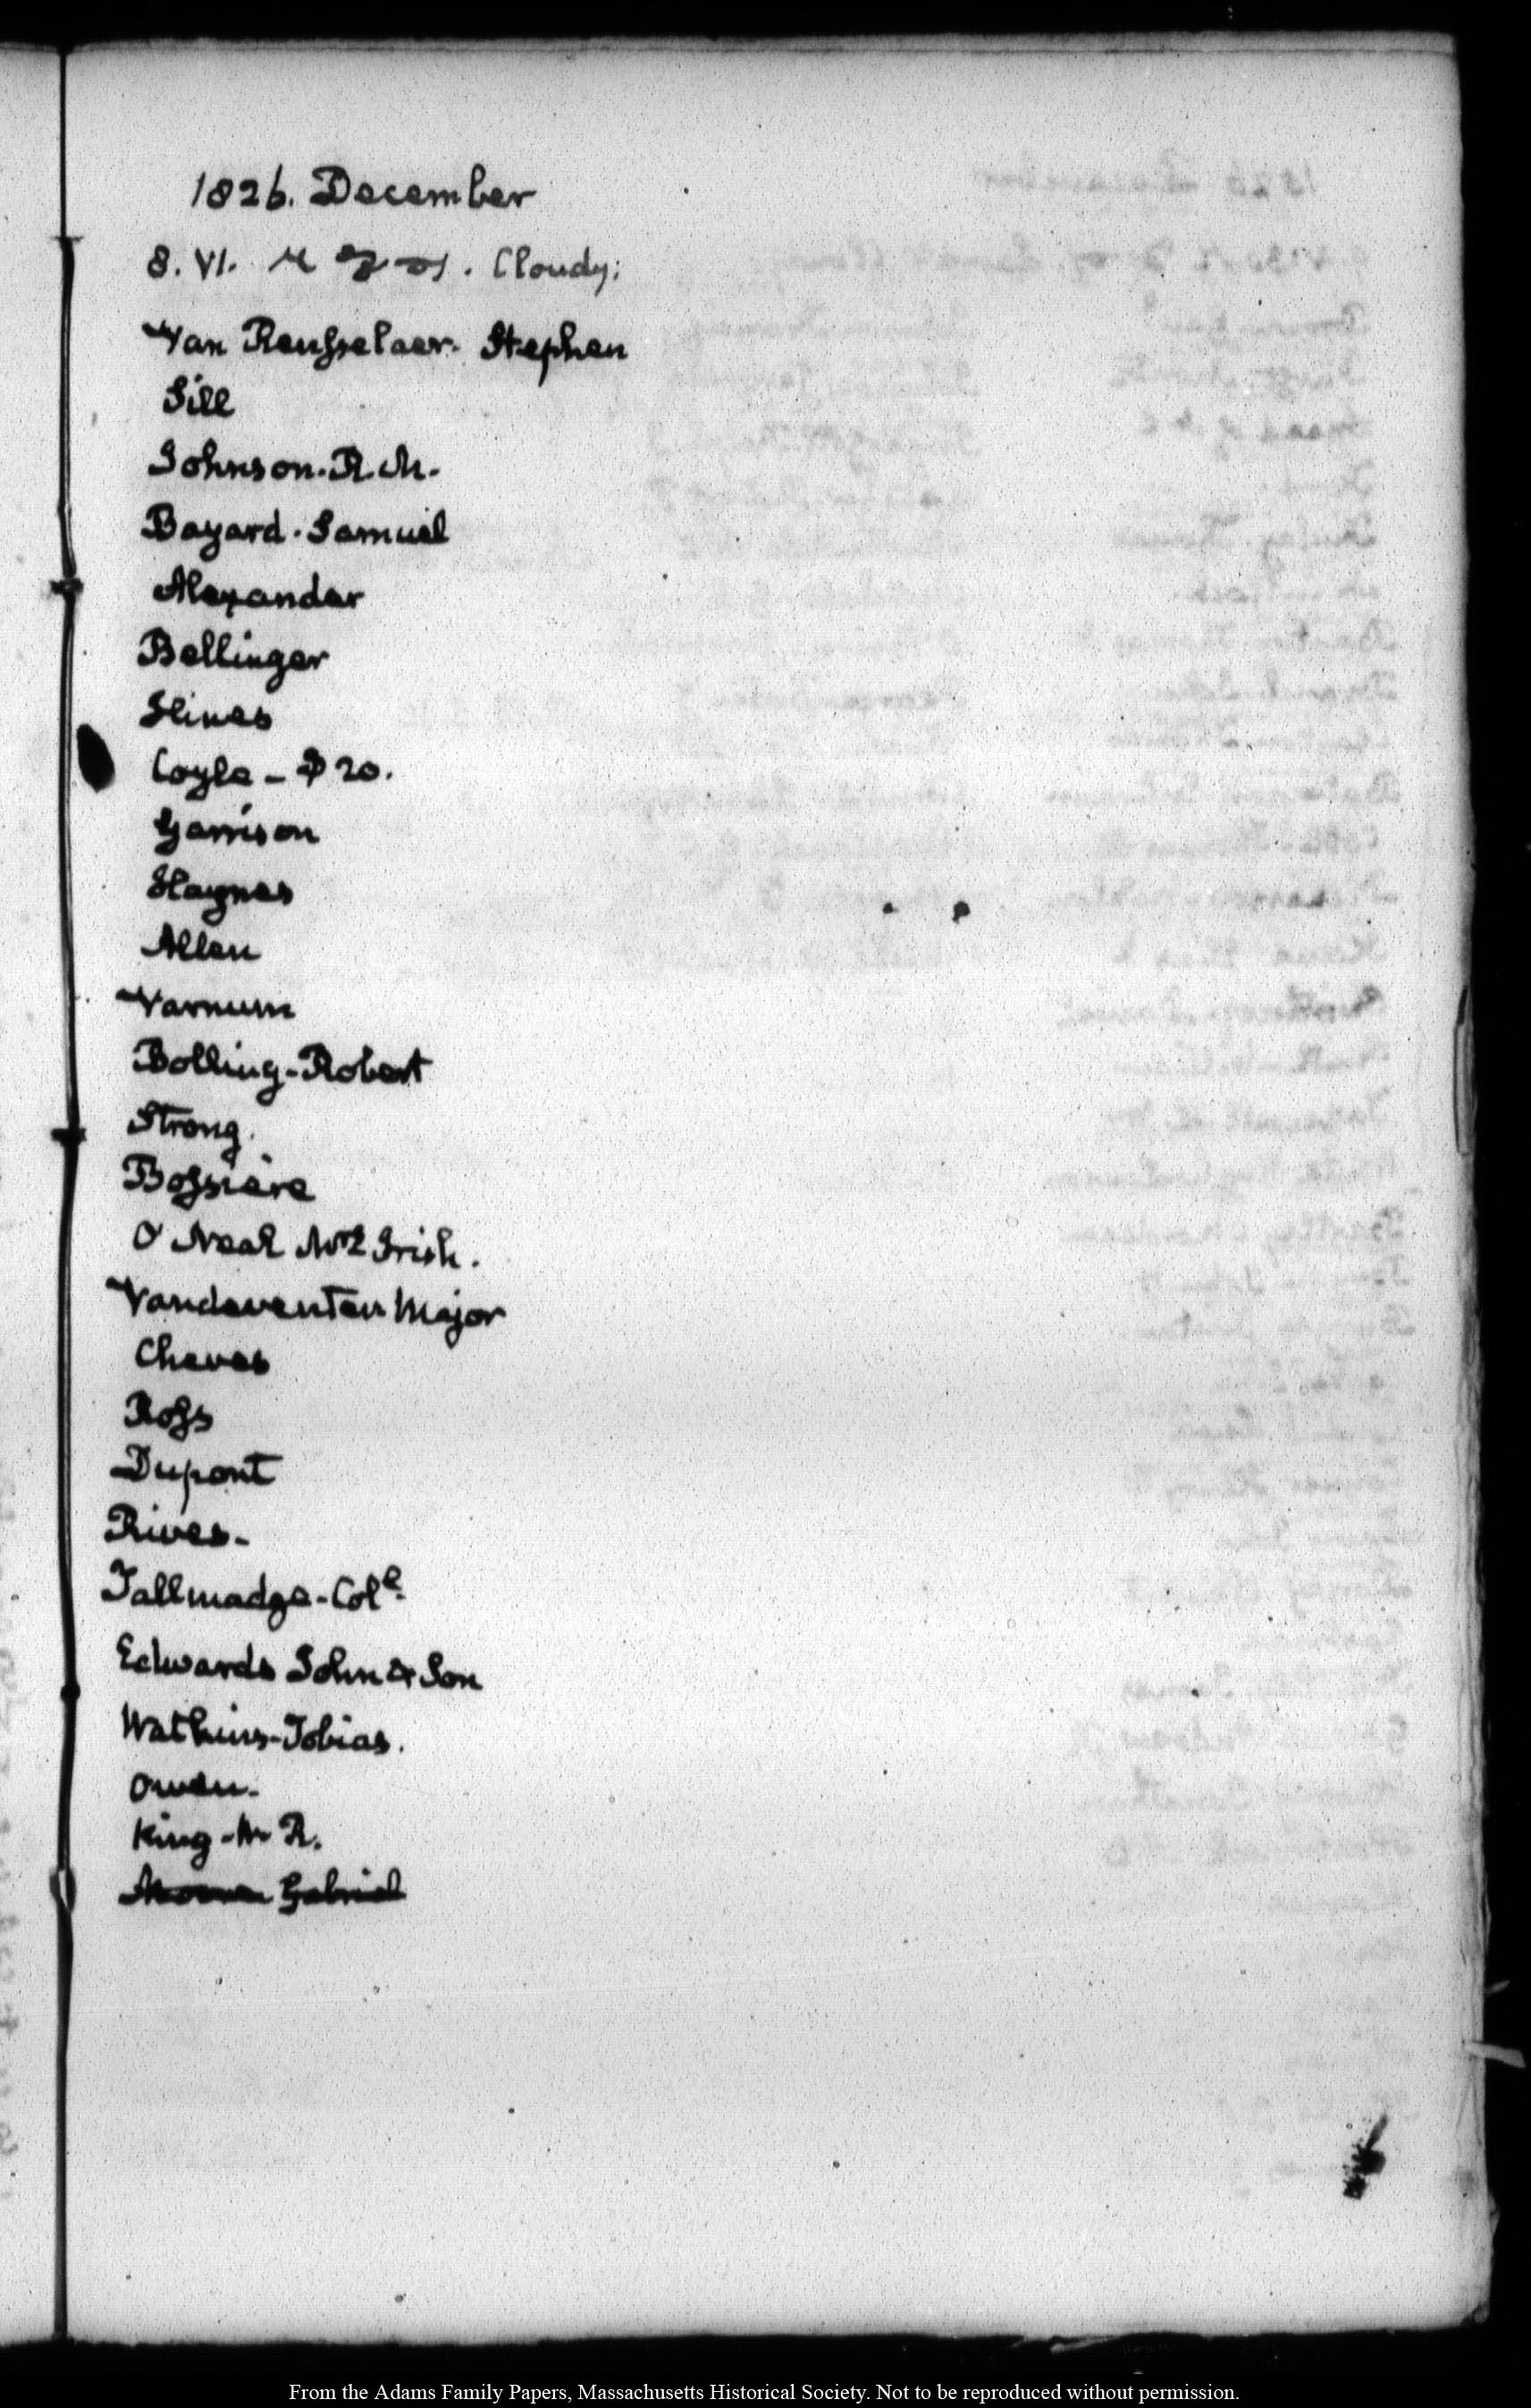 1826. December
8. VI. Cloudy:
Van Rensselaer. Stephen
Sill
Johnson. R. M.
Bayard. Samuel
Alexander
Bellinger
Hines
Coyle – $20.
Garrison
Haynes
Allen
Varnum
Bolling-Robert
Strong.
Bossiere
O Neal Mrs Irish.
Vandeventer Major
Cheves
Ross
Dupont
Rives-
Tallmadge-Coll.
Edwards John & Son
Watkins-Tobias.
Owen-
King-W R.
Gabriel
From the Adams Family Papers, Massachusetts Historical Society. Not to be reproduced without permission.